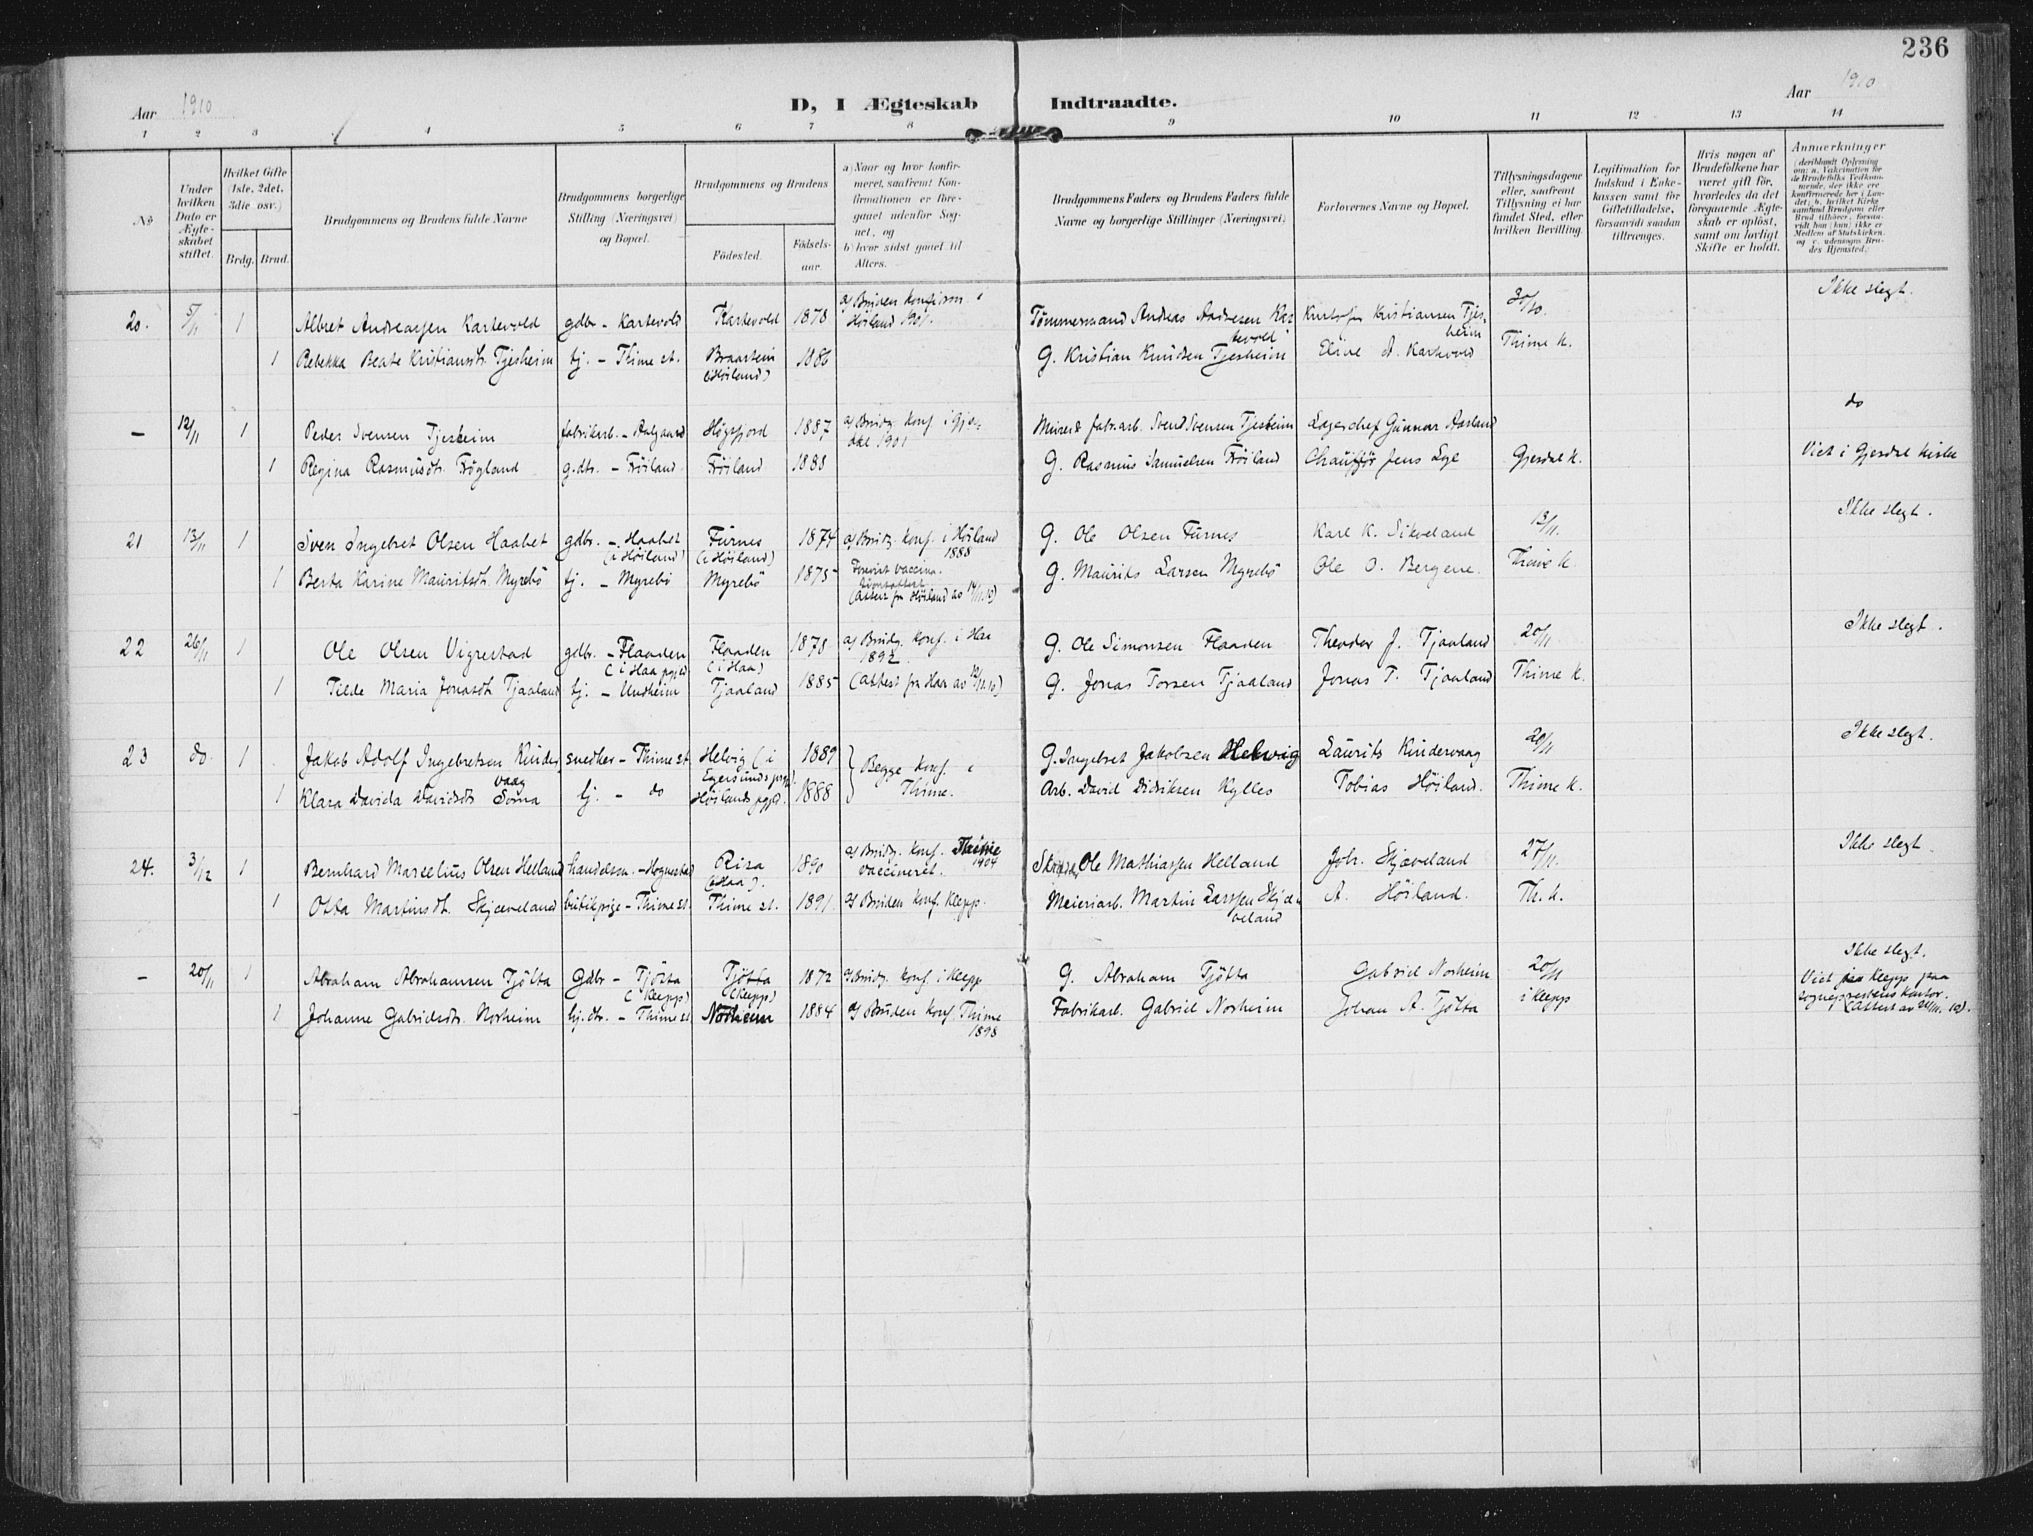 236
Aar 1910
D, I Ægteskab Indtraadte.
Aar 1910
1 2 3 4 5 6 7 8 9 10 11 12 13 14
No
Under hvilken Dato er Ægteskabet stiftet.
Hvilket Gifte (1ste, 2det, 3die osv.)
Brdg. Brud.
Brudgommens og Brudens fulde Navne
Brudgommens borgerlige Stilling (Næringsvei) og Bopæl.
Brudgommens og Brudens
Fødested.
Fødselsaar.
a) Naar og hvor konfirmeret, saafremt Konfirmationen er foregaaet udenfor Sognet, og
b) hvor sidst gaaet til Alters.
Brudgommens Faders og Brudens Faders fulde Navne og borgerlige Stillinger (Næringsvei)
Forlovernes Navne og Bopæl.
Tillysningsdagene eller, saafremt Tillysning ei har fundet Sted, efter hvilken Bevilling.
Legitimation for Indskud i Enkekassen samt for Giftetilladelse, forsaavidt saadan tiltrænges.
Hvis nogen af Brudefolkene har været gift før, hvorledes da det foregaaende Ægteskab er opløst, samt om lovligt Skifte er holdt.
Anmærkninger (deriblandt Oplysning om: a. Vakcination for de Brudefolks Vedkommende, der ikke ere konfirmerede her i Landet; b. hvilket Kirkesamfund Brudgom eller Brud tilhører, forsaavidt han (hun) ikke er Medlem af Statskirken, og c. udensogns Brudes Hjemsted.
20. 5/11 1 Albret Andreassen Kartevold gdbr - Kartevold Kartevold 1878 a) Bruden konfirm. i Høiland 1901. Tømmermand Andreas Andresen Kartevold Kristofer Kristiansen Tjesheim 30/10. Ikke slegt.
1 Rebekka Beate Kristiansdtr. Tjesheim tj. - Thime st. Braastein (Høiland) 1886 G. Kristian Knudsen Tjesheim Eline A. Kartevold Thime k.
- 12/11 1 Peder Svensen Tjesheim fabrikarb. - Aalgaard Høgsfjord 1887 a) Brudg. konf. i Gjesdal 1901 fabr.arb. Svend Svensen Tjesheim Lagerchef Gunnar Aasland do
1 Regina Rasmusdtr. Frøyland g.dtr. - Frøiland Frøiland 1888 G. Rasmus Samuelsen Frøiland Chauffør Jens Lye Gjesdal k. Viet i Gjesdal kirke
21 13/11 1 Sven Ingebret Olsen Haabet gdbr. - Haabet (i Høiland) Furnes (i Høiland) 1874 a) Brudg. konf. i Høiland 1888 G. Ole Olsen Furnes Karl K. Sikveland 13/11. Ikke slegt.
1 Berta Karine Mauritsdtr. Myrebø tj. - Myrebø Myrebø 1875 Forevist vaccina. (Attest fra Høiland av 14/11.10) G. Maurits Larsen Myrebø Ole O. Bergene Thime k.
22 26/11 1 Ole Olsen Vigrestad gdbr. - Flaaden (i Haa pgjd) Flaaden (i Haa) 1878 a) Brudg. konf. i Haa 1892. G. Ole Simonsen Flaaden Theodor J. Tjaaland 20/11 Ikke slegt.
1 Tilde Maria Jonasdtr. Tjaaland tj. - Undheim Tjaaland 1885 (Attest fra Haa av 12/11.10) G. Jonas Torsen Tjaaland Jonas T. Tjaaland Thime k.
23 do. 1 Jakob Adolf Ingebretsen Kindervaag snedker - Thime st. Helvig (i Egersunds pgj.) 1889 } Begge konf. i Thime. G. Ingebret Jakobsen Helwig Laurits Kindervaag 20/11 Ikke slegt.
1 Klara Davida Davidsdtr Soma tj. - do Høilands pgjd. 1888 Arb. David Didriksen Kylles Tobias Høiland. Thime k.
24. 3/12 1 Bernhard Marselius Olsen Helland handelsm. - Hognestad Risa (Haa). 1890 a) Brudg. konf. Thime 1904 vaccineret. Ole Mathiassen Helland Joh. Skjæveland 27/11. Ikke slegt.
1 Otta Martinsdtr. Skjæveland butikpige - Thime st. Thime st. 1891. a) Bruden konf. Klepp. Meieriarb. Martin Larssen Skjæveland A. Høiland. Th. k.
- 20/11 1 Abraham Abrahamsen Tjøtta Gdbr - Tjøtta (Klepp) Tjøtta (Klepp) 1872 a) Brudg. konf. i Klepp G. Abraham Tjøtta Gabriel Norheim 20/11 Ikke slegt.
1 Johanne Gabrielsdtr. Norheim hj.dtr. - Thime st. Norheim 1884 a) Bruden konf. Thime 1898 Fabrikarb. Gabriel Norheim Johan A. Tjøtta i Klepp Viet i Klepp paa sogneprestens kontor. (Attest av 24/11. 10).